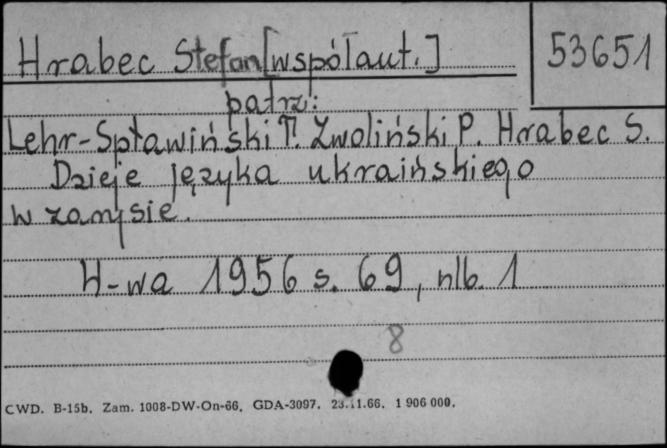 Hrabec Stefan [współaut.]
53651
patrz:
Lehr-Spławiński T. Zwoliński P. Hrabec S.
Dzieje języka ukraińskiego
w zarysie.
W-wa 1956 s. 69, nlb. 1
8
CWD. B-15b. Zam. 1008-DW-On-66. GDA-3097. 23.11.66. 1 906 000.